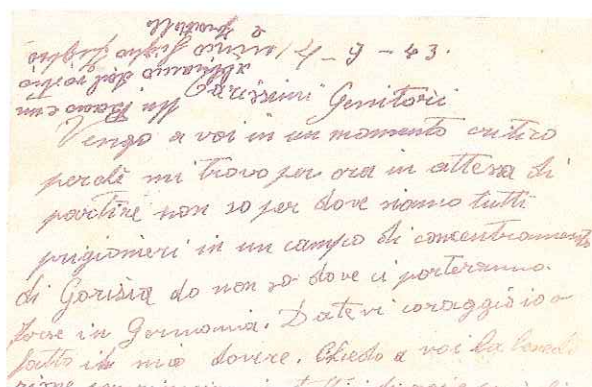 14-9-43.
Carissimi Genitori
Vengo a voi in un momento critico
perchè mi trovo per ora in attesa di
partire non so per dove siamo tutti
prigionieri in un campo di concentramento
di Gorisia do non so dove ci porteranno.
forse in Germania. Datevi coraggio io o
fatto il mio dovere. Chiedo a voi la
Un Bacio e un
abbraccio dal vostro
figlio
e fratello